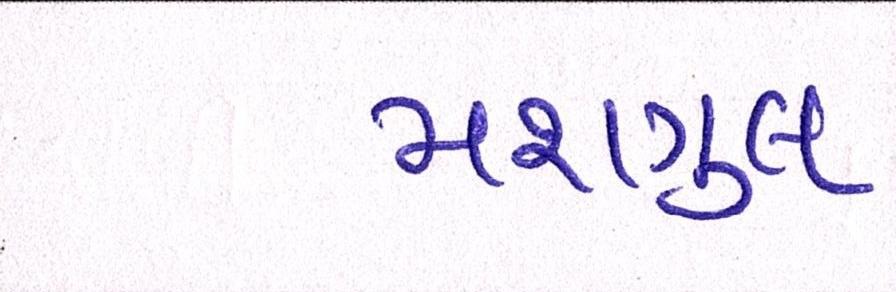 મશગુલ